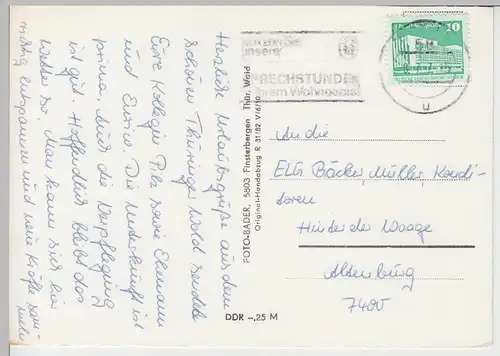 Herzliche Urlaubsgrüße aus dem
schönen Thüringer Wald sendet
Eure Kollegin Pilz sowie Ehemann
und Enrico. Die Unterkunft ist
prima. Auch die Verpflegung
ist gut. Hoffentlich bleibt das
Wetter so. Man kann sich hier
richtig entspannen und neue Kräfte sam-
meln.
FOTO-BADER, 5803 Finsterbergen Thür. Wald
Original-Handabzug R 31/82 V/6/10
DDR -,25 M
unsere
SPRECHSTUNDEN
Ihrem Wohngebiet
10
An die
ELG Bäcker, Müller, Kondi-
toren
Hinter der Waage
Altenburg
7400